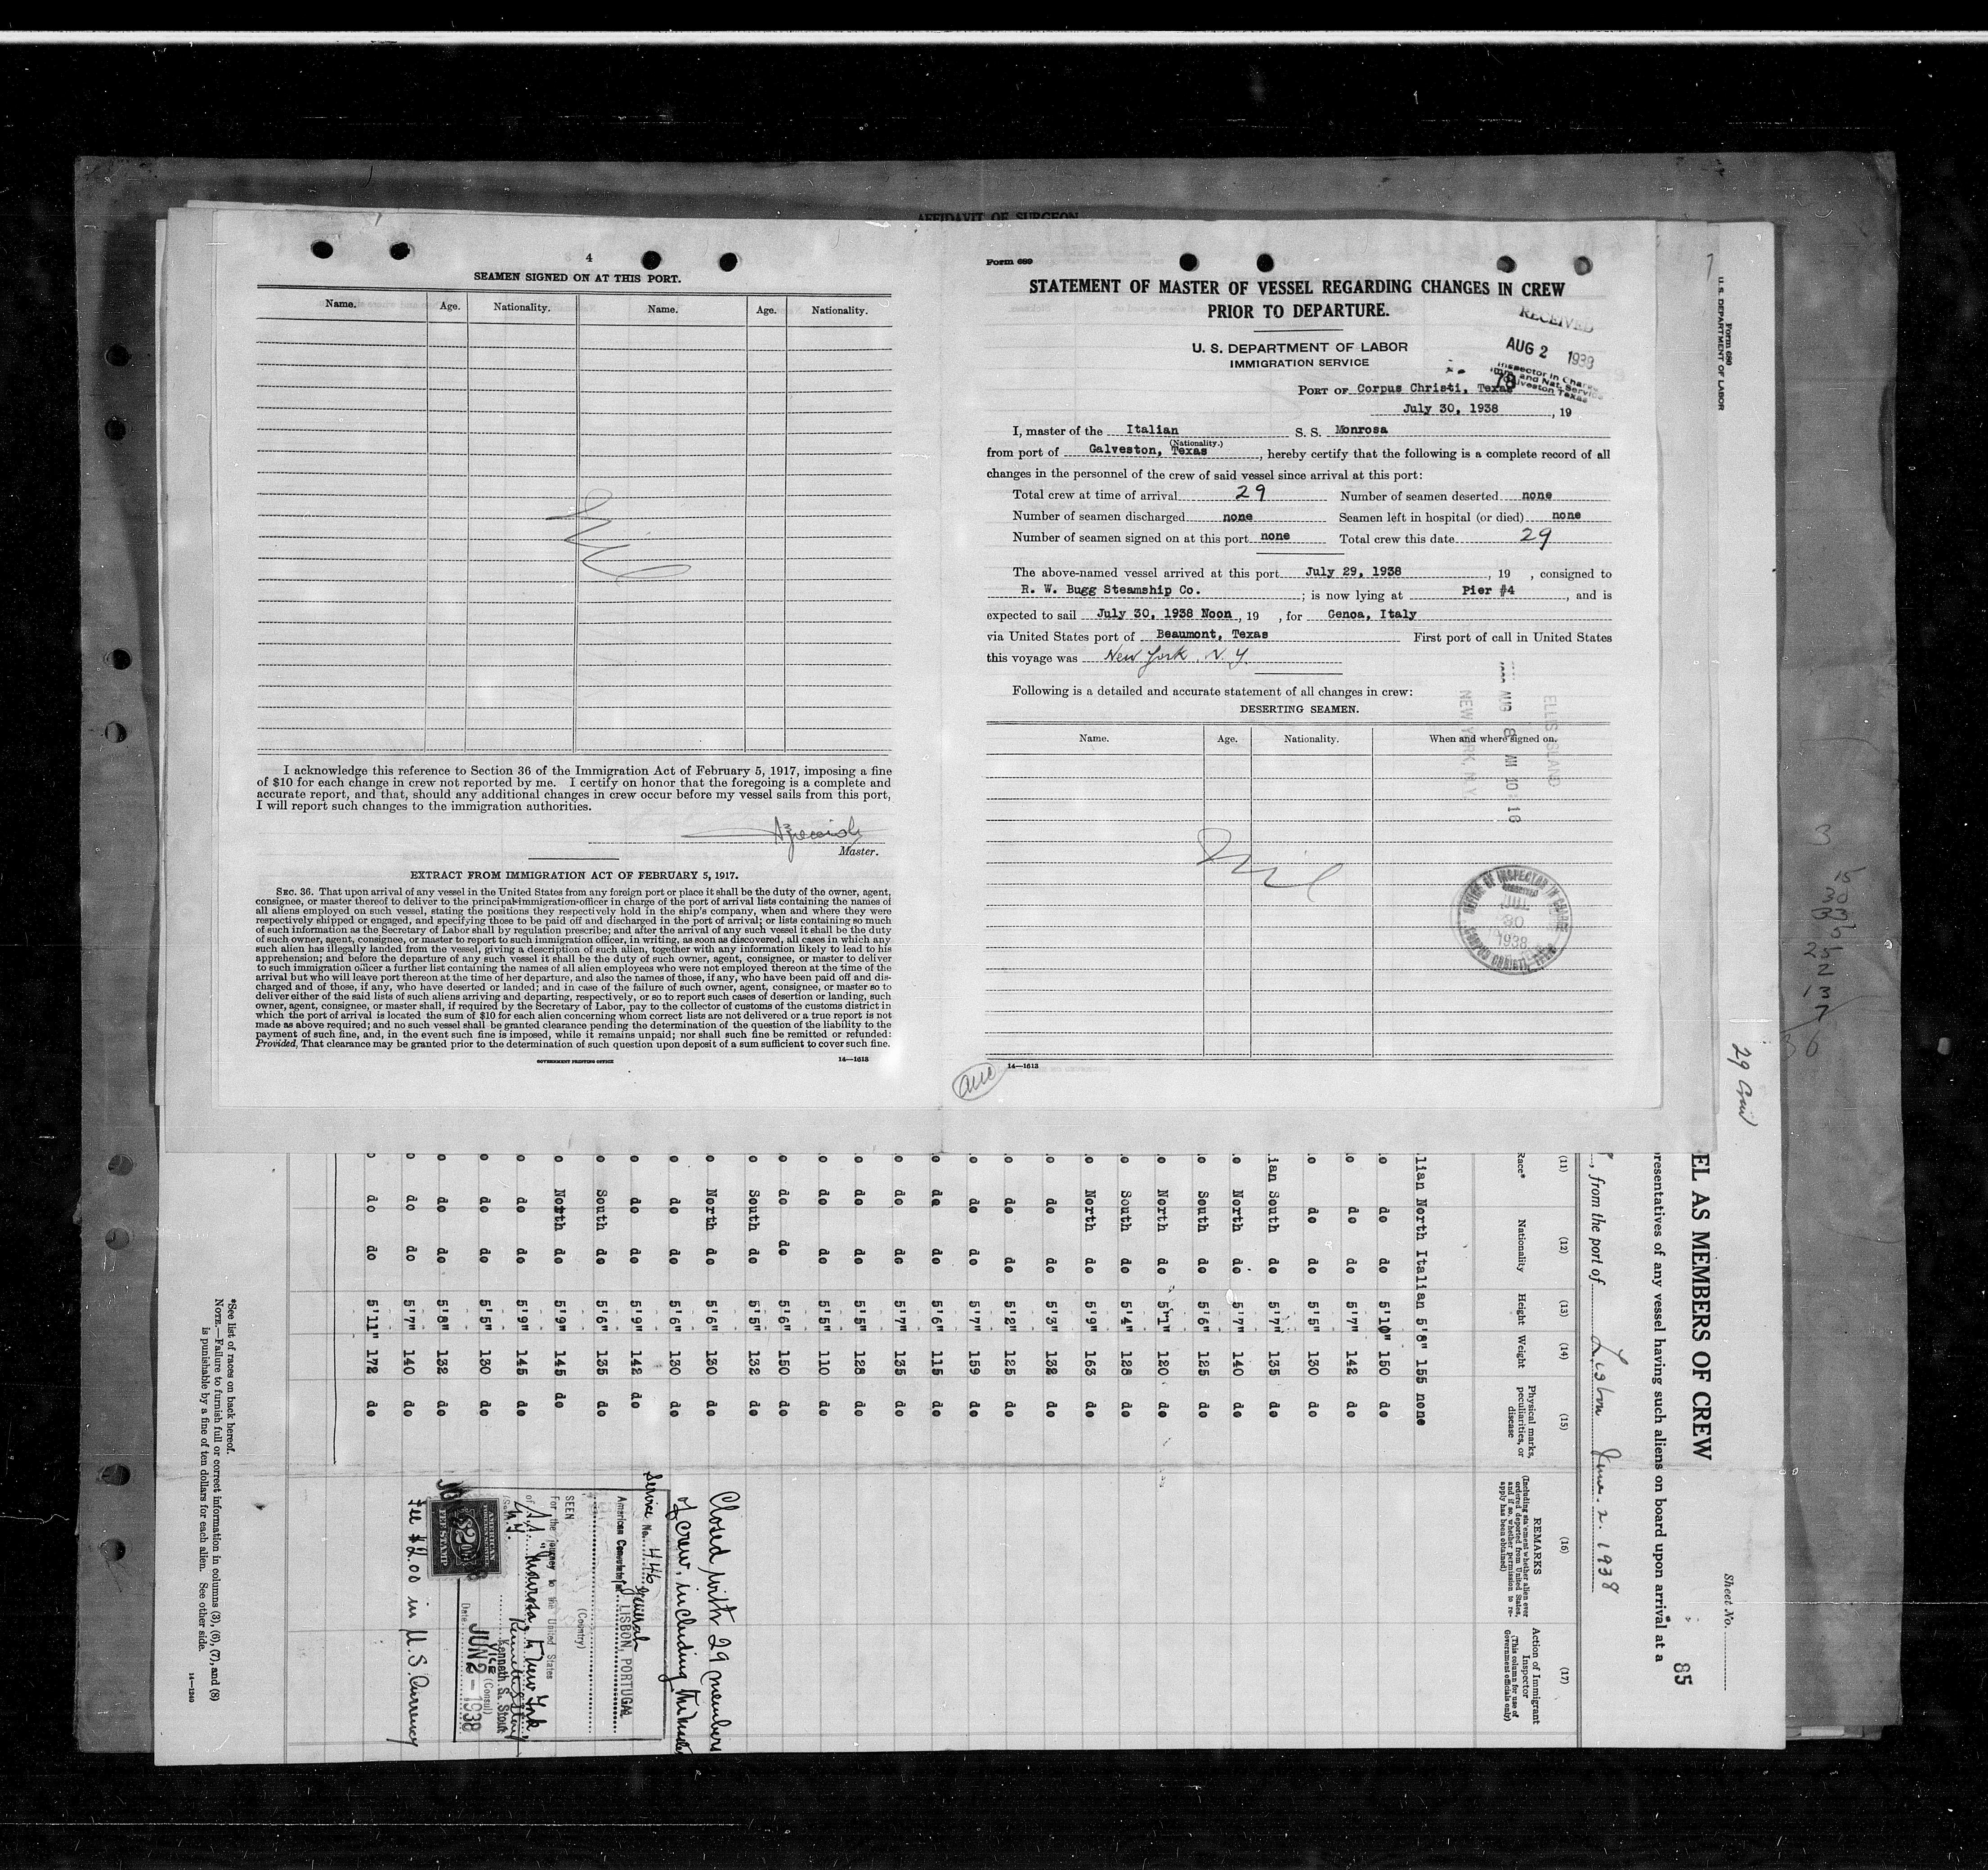 AFFIDAVIT OF SURGEON
4
SEAMEN SIGNED ON AT THIS PORT.
Name. Age. Nationality. Name. Age. Nationality.
Nil
I acknowledge this reference to Section 36 of the Immigration Act of February 5, 1917, imposing a fine
of $10 for each change in crew not reported by me. I certify on honor that the foregoing is a complete and
accurate report, and that, should any additional changes in crew occur before my vessel sails from this port,
I will report such changes to the immigration authorities.
Master.
EXTRACT FROM IMMIGRATION ACT OF FEBRUARY 5, 1917.
SEC. 36. That upon arrival of any vessel in the United States from any foreign port or place it shall be the duty of the owner, agent,
consignee, or master thereof to deliver to the principal immigration officer in charge of the port of arrival lists containing the names of
all aliens employed on such vessel, stating the positions they respectively hold in the ship's company, when and where they were
respectively shipped or engaged, and specifying those to be paid off and discharged in the port of arrival; or lists containing so much
of such information as the Secretary of Labor shall by regulation prescribe; and after the arrival of any such vessel it shall be the duty
of such owner, agent, consignee, or master to report to such immigration officer, in writing, as soon as discovered, all cases in which any
such alien has illegally landed from the vessel, giving a description of such alien, together with any information likely to lead to his
apprehension; and before the departure of any such vessel it shall be the duty of such owner, agent, consignee, or master to deliver
to such immigration officer a further list containing the names of all alien employees who were not employed thereon at the time of the
arrival but who will leave port thereon at the time of her departure, and also the names of those, if any, who have been paid off and dis-
charged and of those, if any, who have deserted or landed; and in case of the failure of such owner, agent, consignee, or master so to
deliver either of the said lists of such aliens arriving and departing, respectively, or so to report such cases of desertion or landing, such
owner, agent, consignee, or master shall, if required by the Secretary of Labor, pay to the collector of customs of the customs district in
which the port of arrival is located the sum of $10 for each alien concerning whom correct lists are not delivered or a true report is not
made as above required; and no such vessel shall be granted clearance pending the determination of the question of the liability to the
payment of such fine, and, in the event such fine is imposed, while it remains unpaid; nor shall such fine be remitted or refunded:
Provided, That clearance may be granted prior to the determination of such question upon deposit of a sum sufficient to cover such fine.
GOVERNMENT PRINTING OFFICE 14—1613
Form 689
STATEMENT OF MASTER OF VESSEL REGARDING CHANGES IN CREW
PRIOR TO DEPARTURE.
RECEIVED
AUG 2 1938
Inspector in Charge
Imm. and Nat. Service
Galveston Texas
U. S. DEPARTMENT OF LABOR
IMMIGRATION SERVICE
PORT OF Corpus Christi, Texas
July 30, 1938, 19
I, master of the Italian S. S. Monrosa
(Nationality.)
from port of Galveston, Texas, hereby certify that the following is a complete record of all
changes in the personnel of the crew of said vessel since arrival at this port:
Total crew at time of arrival 29 Number of seamen deserted none
Number of seamen discharged none Seamen left in hospital (or died) none
Number of seamen signed on at this port none Total crew this date 29
The above-named vessel arrived at this port July 29, 1938, 19 , consigned to
R. W. Bugg Steamship Co. ; is now lying at Pier #4, and is
expected to sail July 30, 1938 Noon, 19 , for Genoa, Italy
via United States port of Beaumont, Texas First port of call in United States
this voyage was New York N. Y.
Following is a detailed and accurate statement of all changes in crew:
DESERTING SEAMEN.
Name. Age. Nationality. When and where signed on.
Nil
ELLIS ISLAND
AUG 8 AM 10 16
NEW YORK, N.Y.
OFFICE OF INSPECTOR IN CHARGE
RECEIVED
JUL
30
1938
CORPUS CHRISTI, TEXAS
14—1613
Form 689
U. S. DEPARTMENT OF LABOR
29 Crew
3
15
30
33
5
25
2
13
7
36
Sheet No.
85
EL AS MEMBERS OF CREW
presentatives of any vessel having such aliens on board upon arrival at a
, from the port of Lisbon June. 2. 1938
(11) (12) (13) (14) (15) (16) (17)
Race* Nationality Height Weight Physical marks, peculiarities, or disease
REMARKS
(Including statement whether alien ever ordered deported from United States, and if so, whether permission to re-apply has been obtained)
Action of Immigrant Inspector
(This column for use of Government officials only)
lian North Italian 5'8" 155 none
o do do 5'10" 150 do
o do do 5'7" 142 do
o do do 5'5" 130 do
ian South do 5'7" 135 do
o North do 5'7" 140 do
o South do 5'6" 125 do
o North do 5'1" 120 do
o South do 5'4" 128 do
o North do 5'9" 163 do
o do do 5'3" 132 do
o do do 5'2" 125 do
o do do 5'7" 159 do
o do do 5'6" 115 do
o do do 5'7" 135 do
o do do 5'5" 128 do
o do do 5'5" 110 do
o do do 5'6" 150 do
o South do 5'5" 132 do
o North do 5'6" 130 do
o do do 5'6" 130 do
o do do 5'9" 142 do
o South do 5'6" 135 do
o North do 5'9" 145 do
o do do 5'9" 145 do
o do do 5'5" 130 do
o do do 5'8" 132 do
o do do 5'7" 140 do
o do do 5'11" 172 do
Closed with 29 members
of crew, including the master
Service No. 446
American Consulate General LISBON, PORTUGAL
(Country)
SEEN
For the journey to the United States
of S.S. "Monrosa, to New York,
N.Y.
Kenneth S. Stout
VICE (Consul)
Date JUN 2 - 1938
AMERICAN
FOREIGN SERVICE
$2.00
FEE STAMP
Fee $2.00 in U.S. Currency
*See list of races on back hereof.
NOTE.—Failure to furnish full or correct information in columns (3), (6), (7), and (8)
is punishable by a fine of ten dollars for each alien. See other side.
14—1240